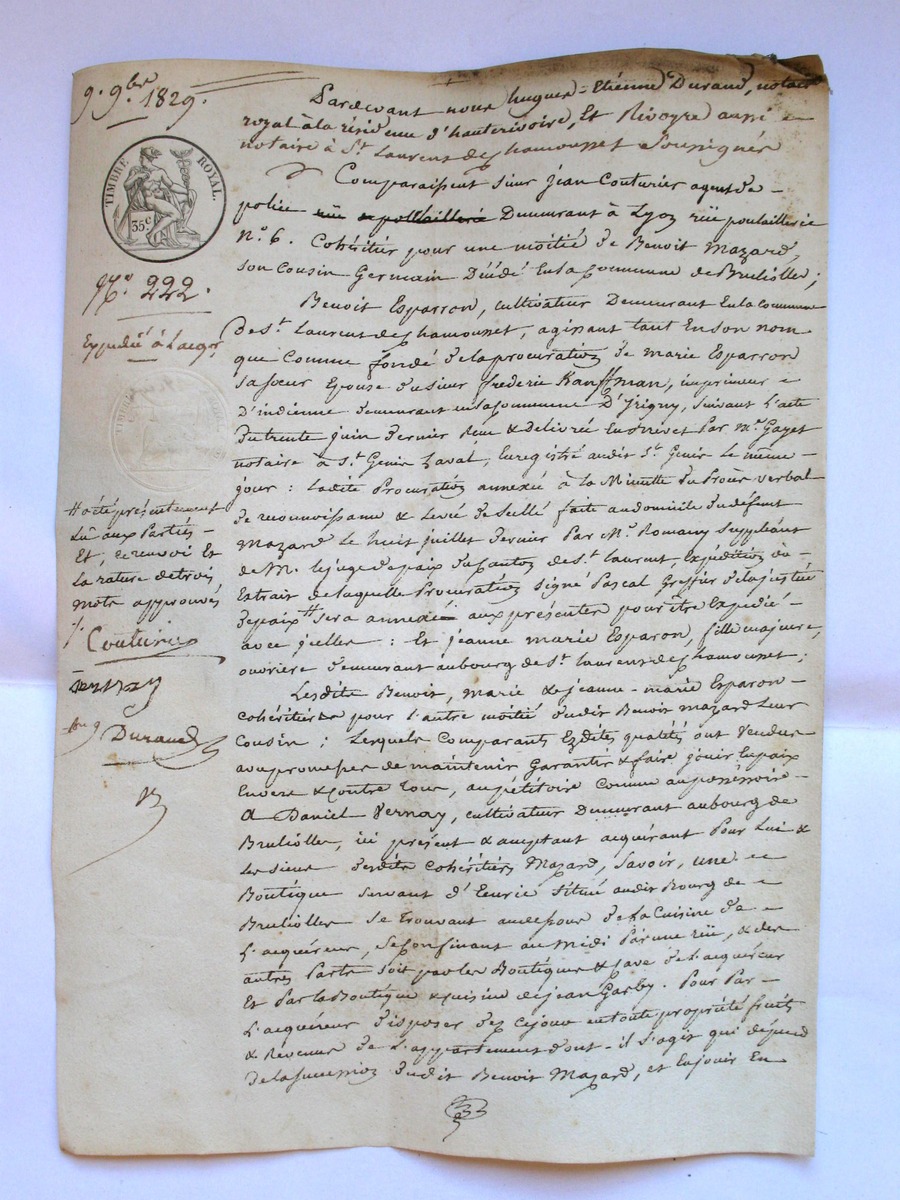 9. 9bre 1829.
TIMBRE ROYAL.
35c
No. 222.
Expédié à Lacqr
Pardevant nous hugues-Etiénne Durand, notaire
royal à la résidence d'hauterivoire, Et Rivoyre aussi
notaire à St Laurent de Chamousset Soussignés
Comparaissent sieur Jean Couturier agent de
police rüe poullaillerie Demeurant à Lyon rüe poulaillerie
No. 6. Cohéritier pour une moitié de Benoit Mazard,
son Cousin Germain Décédé En la Commune de Brulliolles;
Benoit Esparron, cultivateur Demeurant En la commune
De St Laurent de Chamousset, agissant tant En son nom
que Comme fondé de la procuration de marie Esparron
sa soeur Epouse du sieur frédéric Kauffman, imprimeur
D'indienne demeurant en la Commune D'Yrigny, suivant l'acte
du trente juin dernier Reçu & délivrée En Brevet Par Me Gayet
notaire à St Genis Laval, Enregistré audit St Genis Le même
jour : Ladite Procuration annexée à la Minutte du Procès verbal
de reconnoissance & Levée de Scellé faite au domicile du défunt
Mazard Le huit juillet dernier Par Mr Romany Suppléant
de M. le juge de paix du Canton de St Laurent, Expédition ou
Extrait de laquelle Procuration Signé Pascal Greffier de la justice
de paix # sera annexée aux présentes pour être Expédié
avec icelles : Et jeanne marie Esparon, fille majeure,
ouvrière demeurant au bourg de St Laurent de Chamousset;
Lesdits Benoit, marie & jeanne-marie Esparon
cohéritiers pour l'autre moitié dudit Benoit mazard Leur
Cousin; Lesquels Comparants Ezdites qualités ont vendu
avec promesses de maintenir Garantir & faire jouir En paix
Envers & Contre tous, au pétitoire comme au possessoire
A Daniel Vernay, cultivateur Demeurant au bourg de
Brulliolles, ici présent & acceptant acquérant Pour Lui &
Les siens desdits cohéritiers Mazard, Savoir, une
Boutique servant d'Ecurie Située audit Bourg de
Brulliolles se trouvant au dessous de la Cuisine de
L'acquéreur, se Confinant au Midi Par une rüe, & des
autres Parts soit par les Boutiques & Cave de L'acquéreur
Et Par la Boutique & cuisine de jean Garby. Pour Par
L'acquéreur disposer dez Cejour en toute propriété fruits
& Revenus de L'appartement dont-il s'agit qui dépend
De la succession dudit Benoit Mazard, et En jouir En
# a été présentement
Lû aux Parties
Et, ce renvoi Et
La rature de trois
mots approuvés
Couturier
Durand